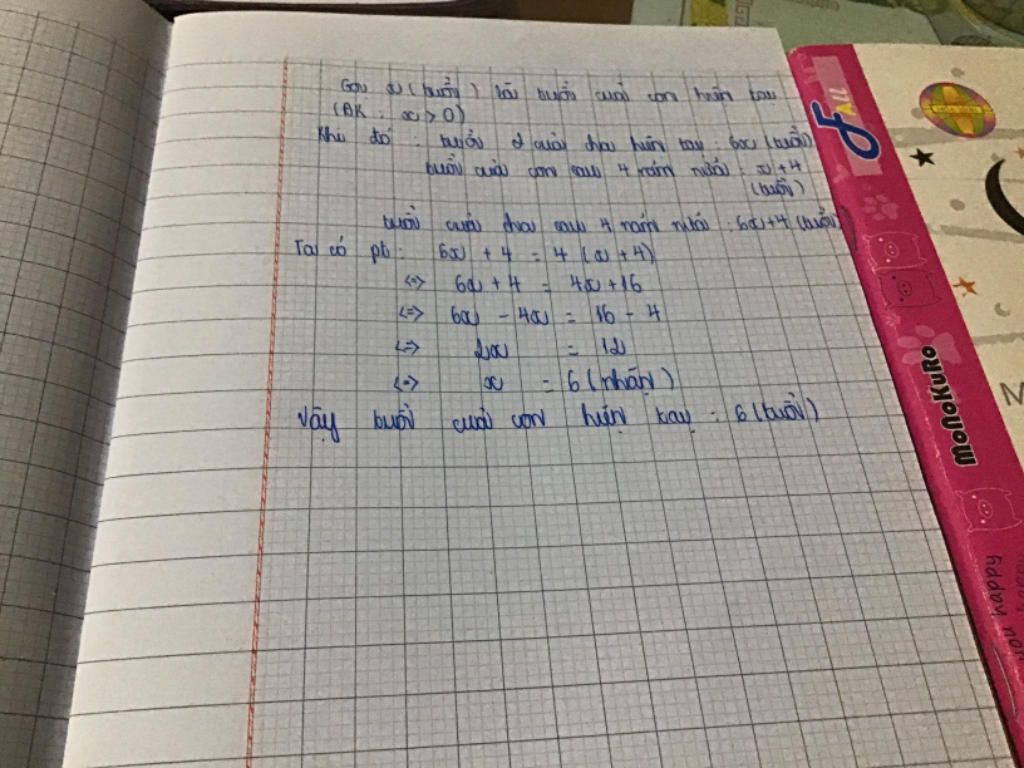 Gọi x (tuổi) là tuổi của con hiện tay
(ĐK : x > 0)
Khi đó : tuổi của cha hiện tay : 6x (tuổi)
tuổi của con sau 4 năm nữa : x + 4
(tuổi)
tuổi của cha sau 4 năm nữa : 6x+4 (tuổi)
Ta có pt : 6x + 4 = 4 (x + 4)
<=> 6x + 4 = 4x + 16
<=> 6x - 4x = 16 - 4
<=> 2x = 12
<=> x = 6 (nhận)
Vậy tuổi của con hiện tay : 6 (tuổi)
MoNoKuRo
you happy